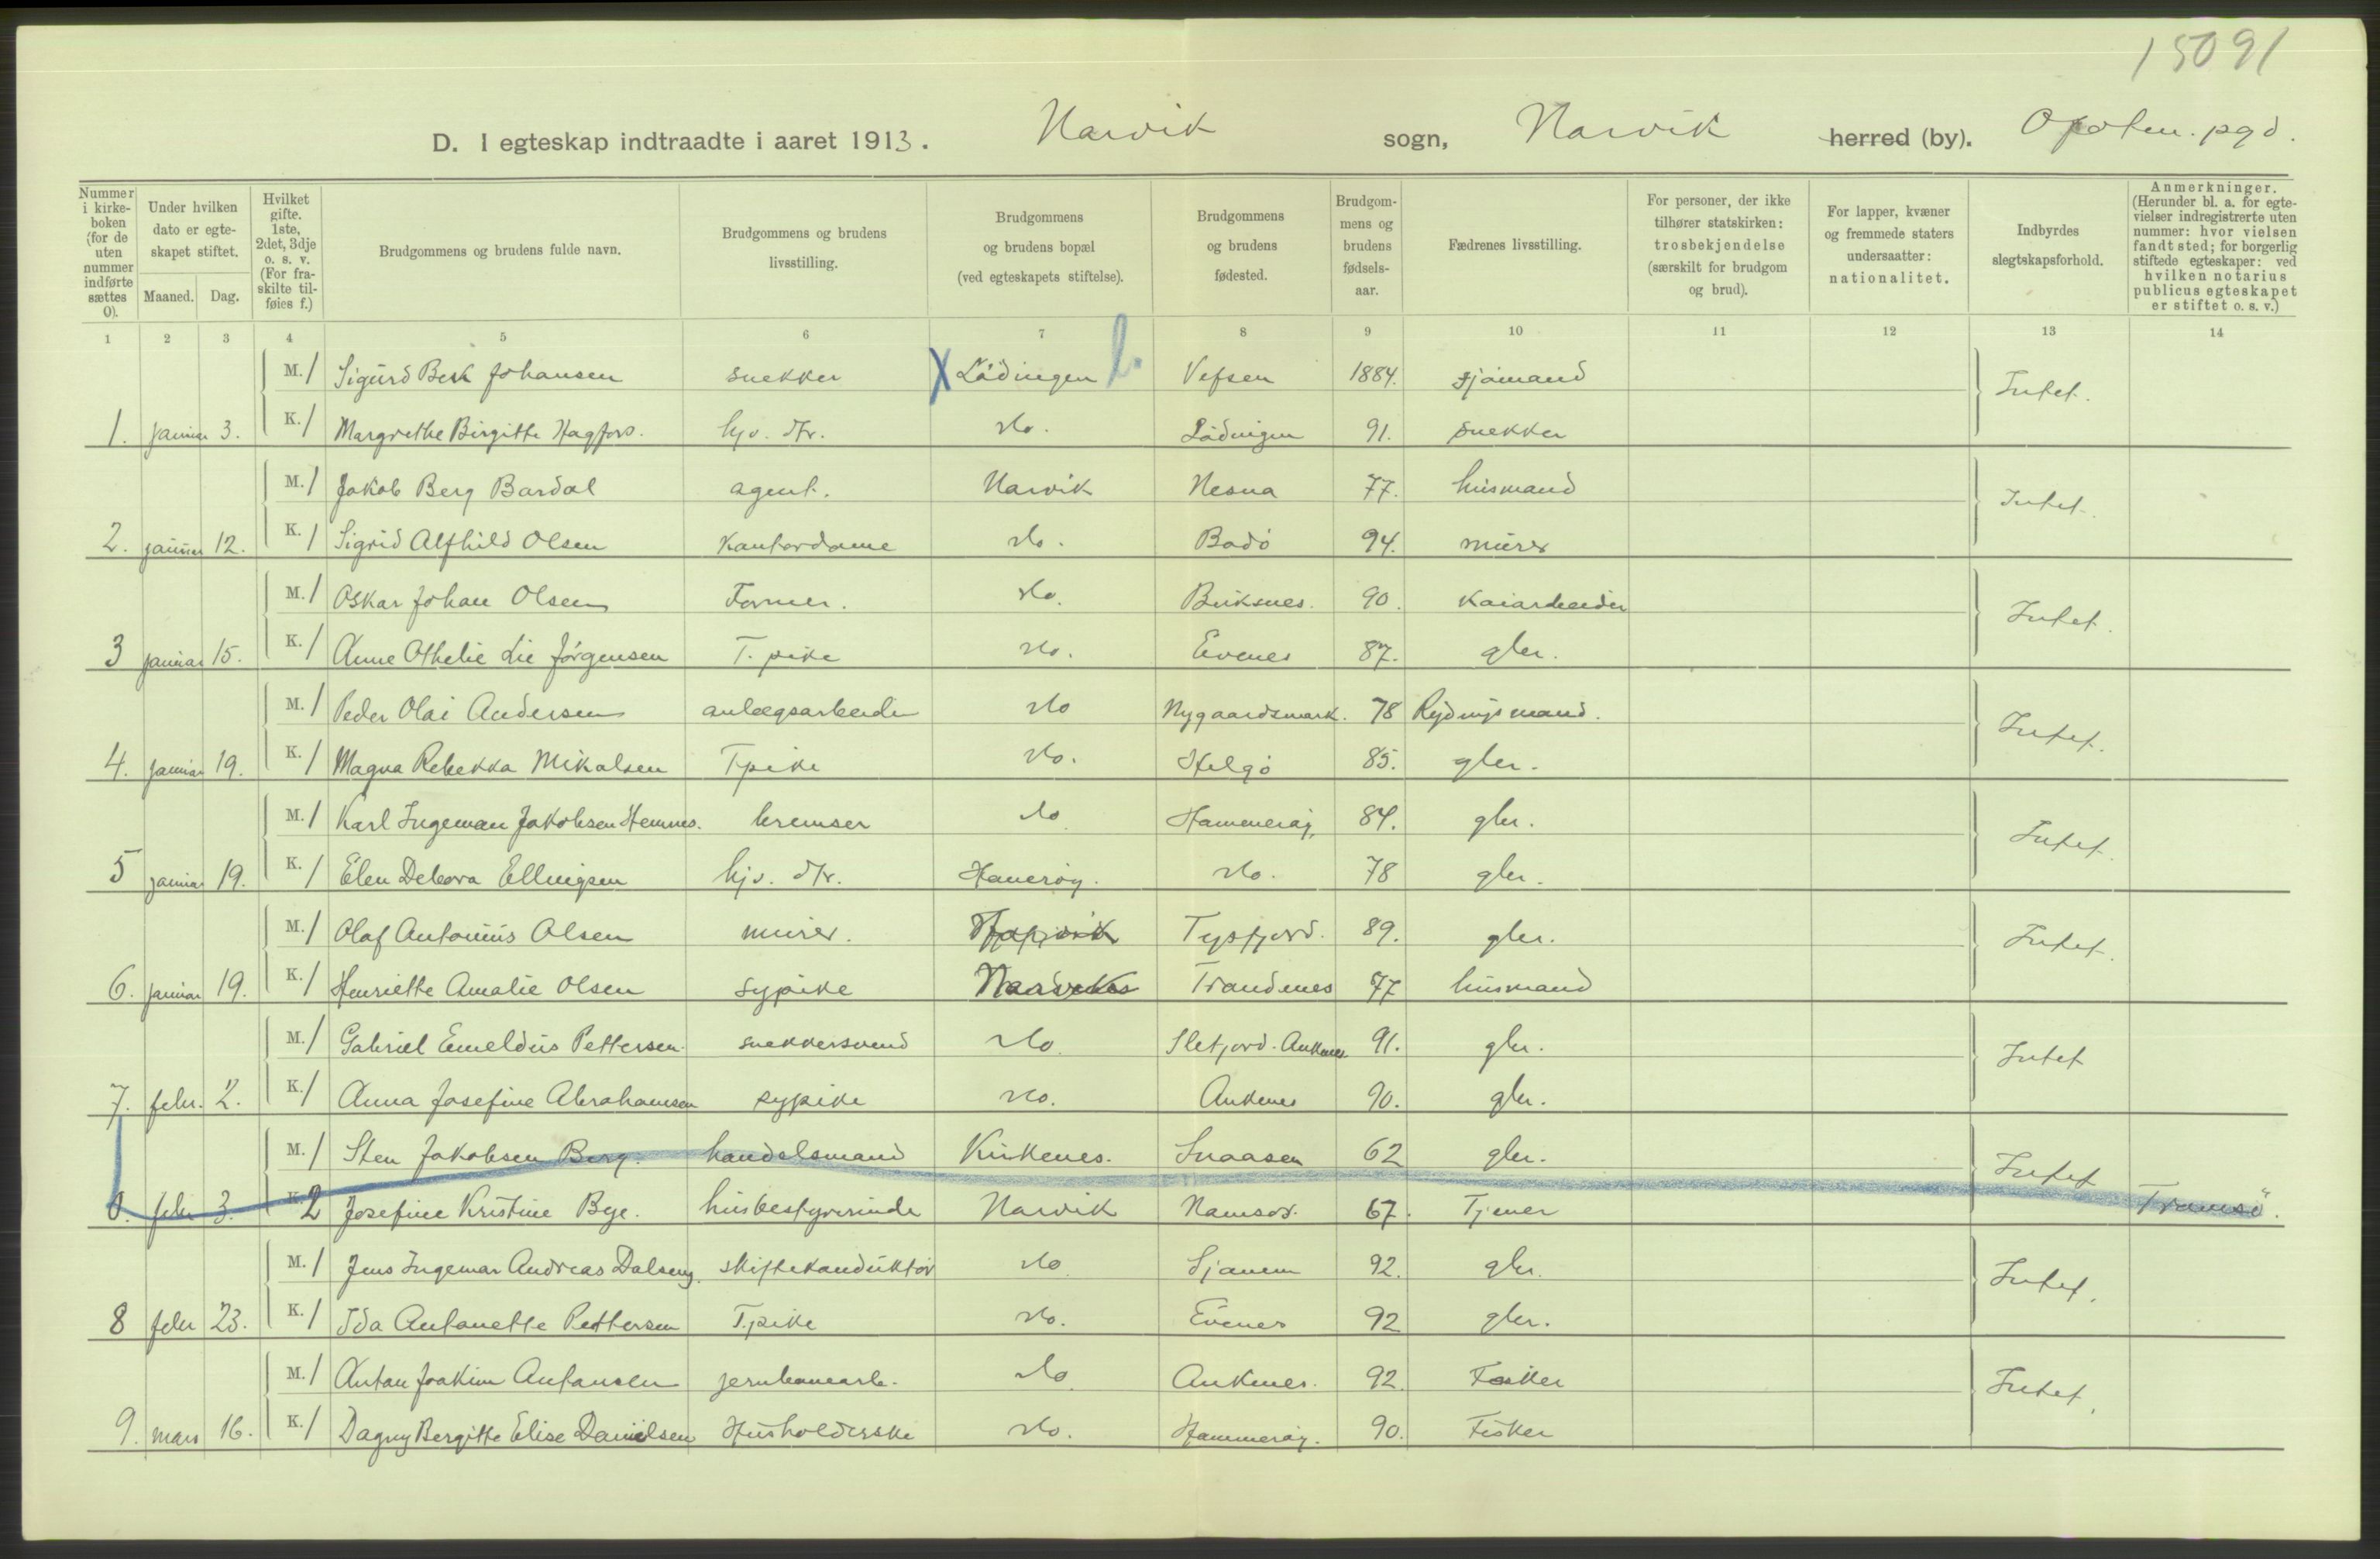 15091
D. I egteskap indtraadte i aaret 1913. Narvik sogn, Narvik herred (by). Ofoten. pgd.
Nummer i kirkeboken (for de uten nummer indførte sættes 0).
Under hvilken dato er egteskapet stiftet.
Maaned. Dag.
Hvilket gifte. 1ste, 2det, 3dje o. s. v. (For fraskilte tilføies f.)
Brudgommens og brudens fulde navn.
Brudgommens og brudens livsstilling.
Brudgommens og brudens bopæl (ved egteskapets stiftelse).
Brudgommens og brudens fødested.
Brudgommens og brudens fødselsaar.
Fædrenes livsstilling.
For personer, der ikke tilhører statskirken: trosbekjendelse (særskilt for brudgom og brud).
For lapper, kvæner og fremmede staters undersaatter: nationalitet.
Indbyrdes slegtskapsforhold.
Anmerkninger. (Herunder bl. a. for egtevielser indregistrerte uten nummer: hvor vielsen fandt sted; for borgerlig stiftede egteskaper: ved hvilken notarius publicus egteskapet er stiftet o. s. v.)
1 2 3 4 5 6 7 8 9 10 11 12 13 14
M. 1 Sigurd Berk Johansen snekker X Lødingen b. Vefsen 1884. sjømand Intet.
1. januar 3. K. 1 Margrethe Birgitte Hagfors. hjv. dtr. do. Lødingen 91. snekker
M. 1 Jakob Berg Bardal agent. Narvik Nesna 77. husmand Intet.
2. januar 12. K. 1 Sigrid Alfhild Olsen Kontordame do. Bodø 94. murer
M. 1 Oskar Johan Olsen Former. do. Buksnes. 90. Kaiarbeider Intet.
3 januar 15. K. 1 Anne Othelie Lie Jørgensen T. pike do. Evenes 87. gbr.
M. 1 Peder Olai Andersen anlægsarbeider do Nygaardsmark. 78 Rydningsmand. Intet.
4. januar 19. K. 1 Magna Rebekka Mikalsen T pike do. Helgø 85. gbr.
M. 1 Karl Ingeman Jakobsen Hemnes. bremser do Hammerøy, 84. gbr. Intet.
5 januar 19. K. 1 Elen Debora Ellingsen hjv. dtr. Hamerøy. do. 78 gbr.
M. 1 Olaf Antonius Olsen murer. Tysfjord. 89. gbr. Intet.
6. januar 19. K. 1 Henriette Amalie Olsen sypike Narvik Trandenes 77 husmand
M. 1 Gabriel Emeldus Pettersen snekkersvend do. Sletjord. Ankenes 91. gbr. Intet
7. febr. 2. K. 1 Anna Josefine Abrahamsen sypike do. Ankenes 90. gbr.
M. 1 Sten Jakobsen Berg. handelsmand Kirkenes. Snaasen 62 gbr. Intet
0. febr 3. K. 2 Josefine Kristine Bye. husbestyrerinde Narvik Namsos. 67. Tjener Tromsø.
M. 1 Jens Ingemar Andreas Dalseng. skiftekonduktør do. Sjanem 92. gbr. Intet.
8 febr 23. K. 1 Ida Antonette Pettersen T. pike do. Evenes 92 gbr.
M. 1 Anton Joakim Antonsen jernbanearb. do Ankenes. 92. Fisker Intet.
9. mars 16. K. 1 Dagny Bergitte Elise Danielsen Husholderske do. Hammerøy. 90. Fisker